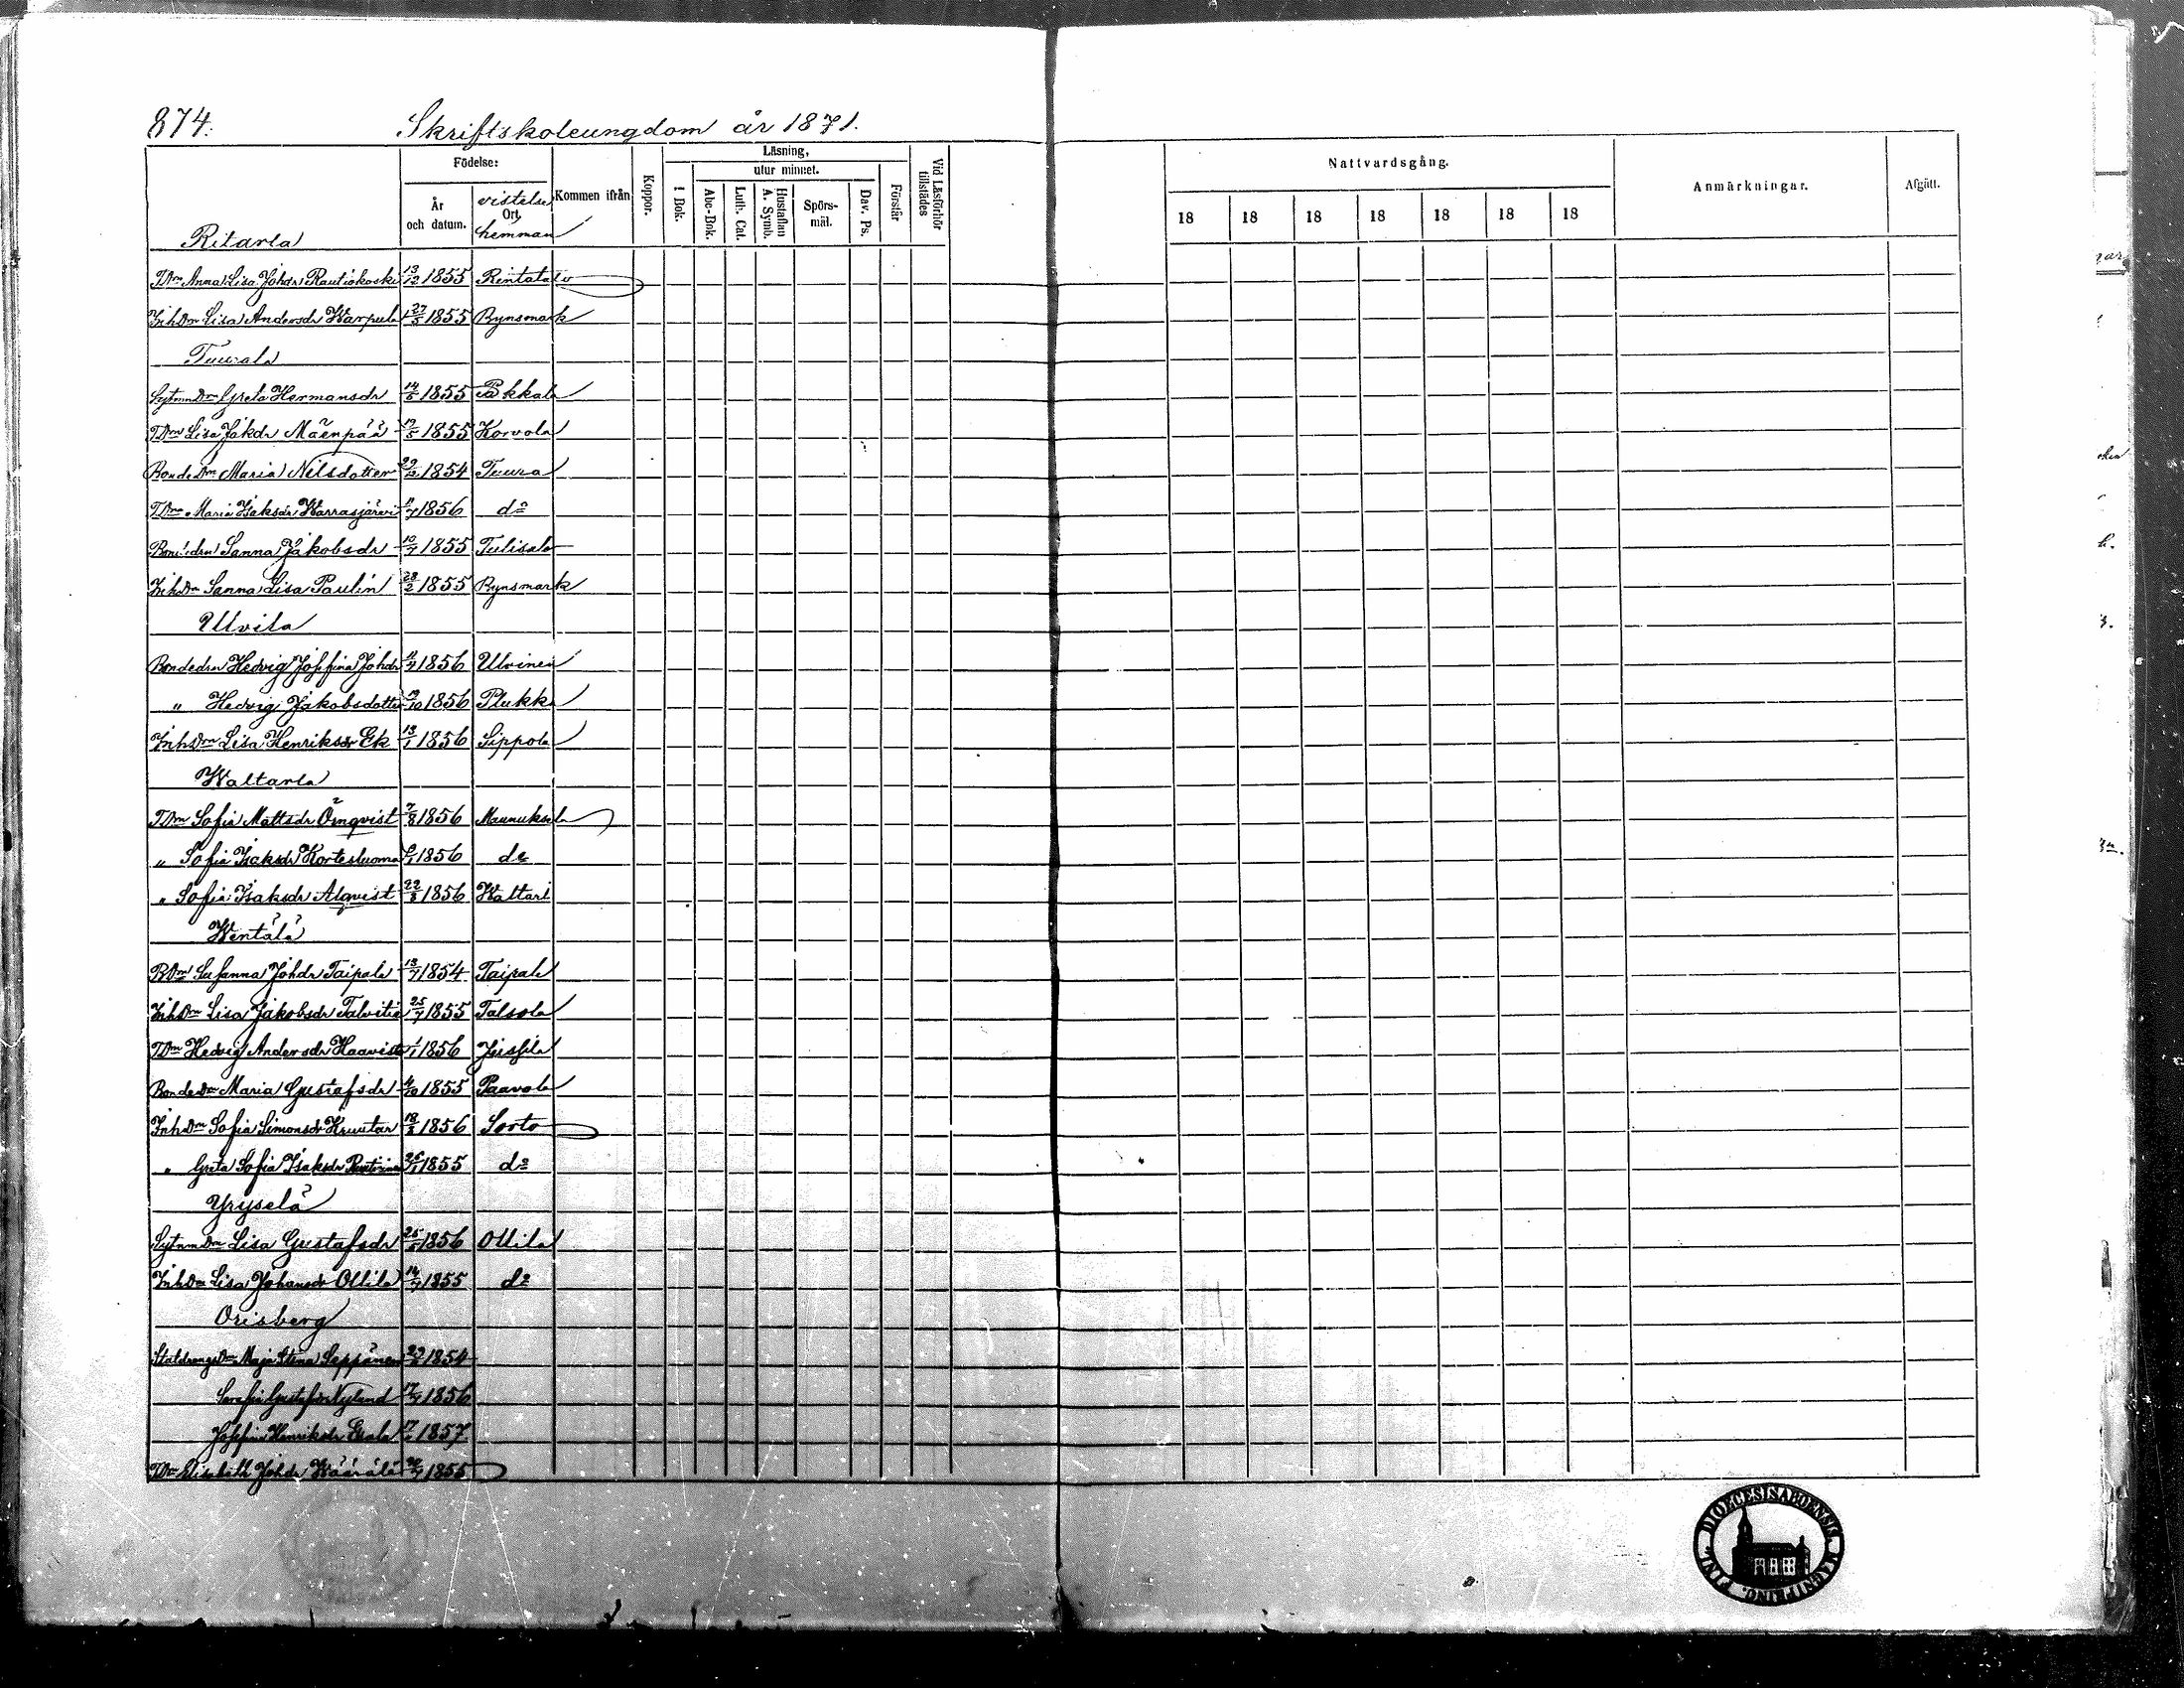 874.
Skriftskoleungdom år 1871.
Födelse:
År och datum.
vistelse Ort, hemman
Kommen ifrån
Koppor.
Läsning,
utur minnet.
I Bok.
Abc-Bok.
Luth. Cat.
Hustaflan A. Symb.
Spörs-mål.
Dav. Ps.
Förstår
Vid Läsförhör tillstädes
Nattvardsgång.
18 18 18 18 18 18 18
Anmärkningar.
Afgått.
Ritarla
TDrn Anna Lisa Johdr Rautiokoski 13/12 1855 Rintatalo
InhDrn Lisa Andersdr Warpula 27/5 1855 Bynsmark
Tuurala
SytnmDrn Greta Hermansdr 14/6 1855 Pukkala
TDrn Lisa Jakdr Mäenpää 19/5 1855 Korvola
BondeDrn Maria Nilsdotter 29/12 1854 Tuura
TDrn Maria Isaksdr Warrasjärvi 1856 do
Bondedrn Sanna Jakobsdr 10/7 1855 Tulisalo
InhDrn Sanna Lisa Paulin 28/2 1855 Bynsmark
Ulvila
Bondedrn Hedvig Josefina Johdr 1856 Ulvinen
" Hedvig Jakobsdotter 19/10 1856 Plukka
InhDrn Lisa Henriksdr Ek 13/1 1856 Sippola
Waltarla
TDrn Sofia Mattsdr Örnqvist 7/8 1856 Maunuksela
" Sofia Isaksdr Kortesluoma 1856 do
" Sofia Isaksdr Alqvist 22/8 1856 Waltari
Wentälä
BDrn Susanna Johdr Taipale 13/7 1854 Taipale
InhDrn Lisa Jakobsdr Talvitie 25/7 1855 Talsola
TDrn Hedvig Andersdr Haavisto 1/1 1856
BondeDrn Maria Gustafsdr 4/10 1855 Paavola
InhDrn Sofia Simonsdr 18/2 1856 Sorto
" Greta Sofia Isaksdr 26/1 1855 do
Yryselä
SytnmDrn Lisa Gustafsdr 1856 Ollila
InhDrn Lisa Johansdr Ollila 14/7 1855 do
Orisberg
StaldrengsDrn Maja Stina Seppänen 1854
Serafia Gustafsdr Nylund 17/4 1856
Josefina Henriksdr 1857
TDrn Elisabeth Johdr Wäärälä 1855
DIOECESIS ABOENSIS MAGNI PRINC. FINL.